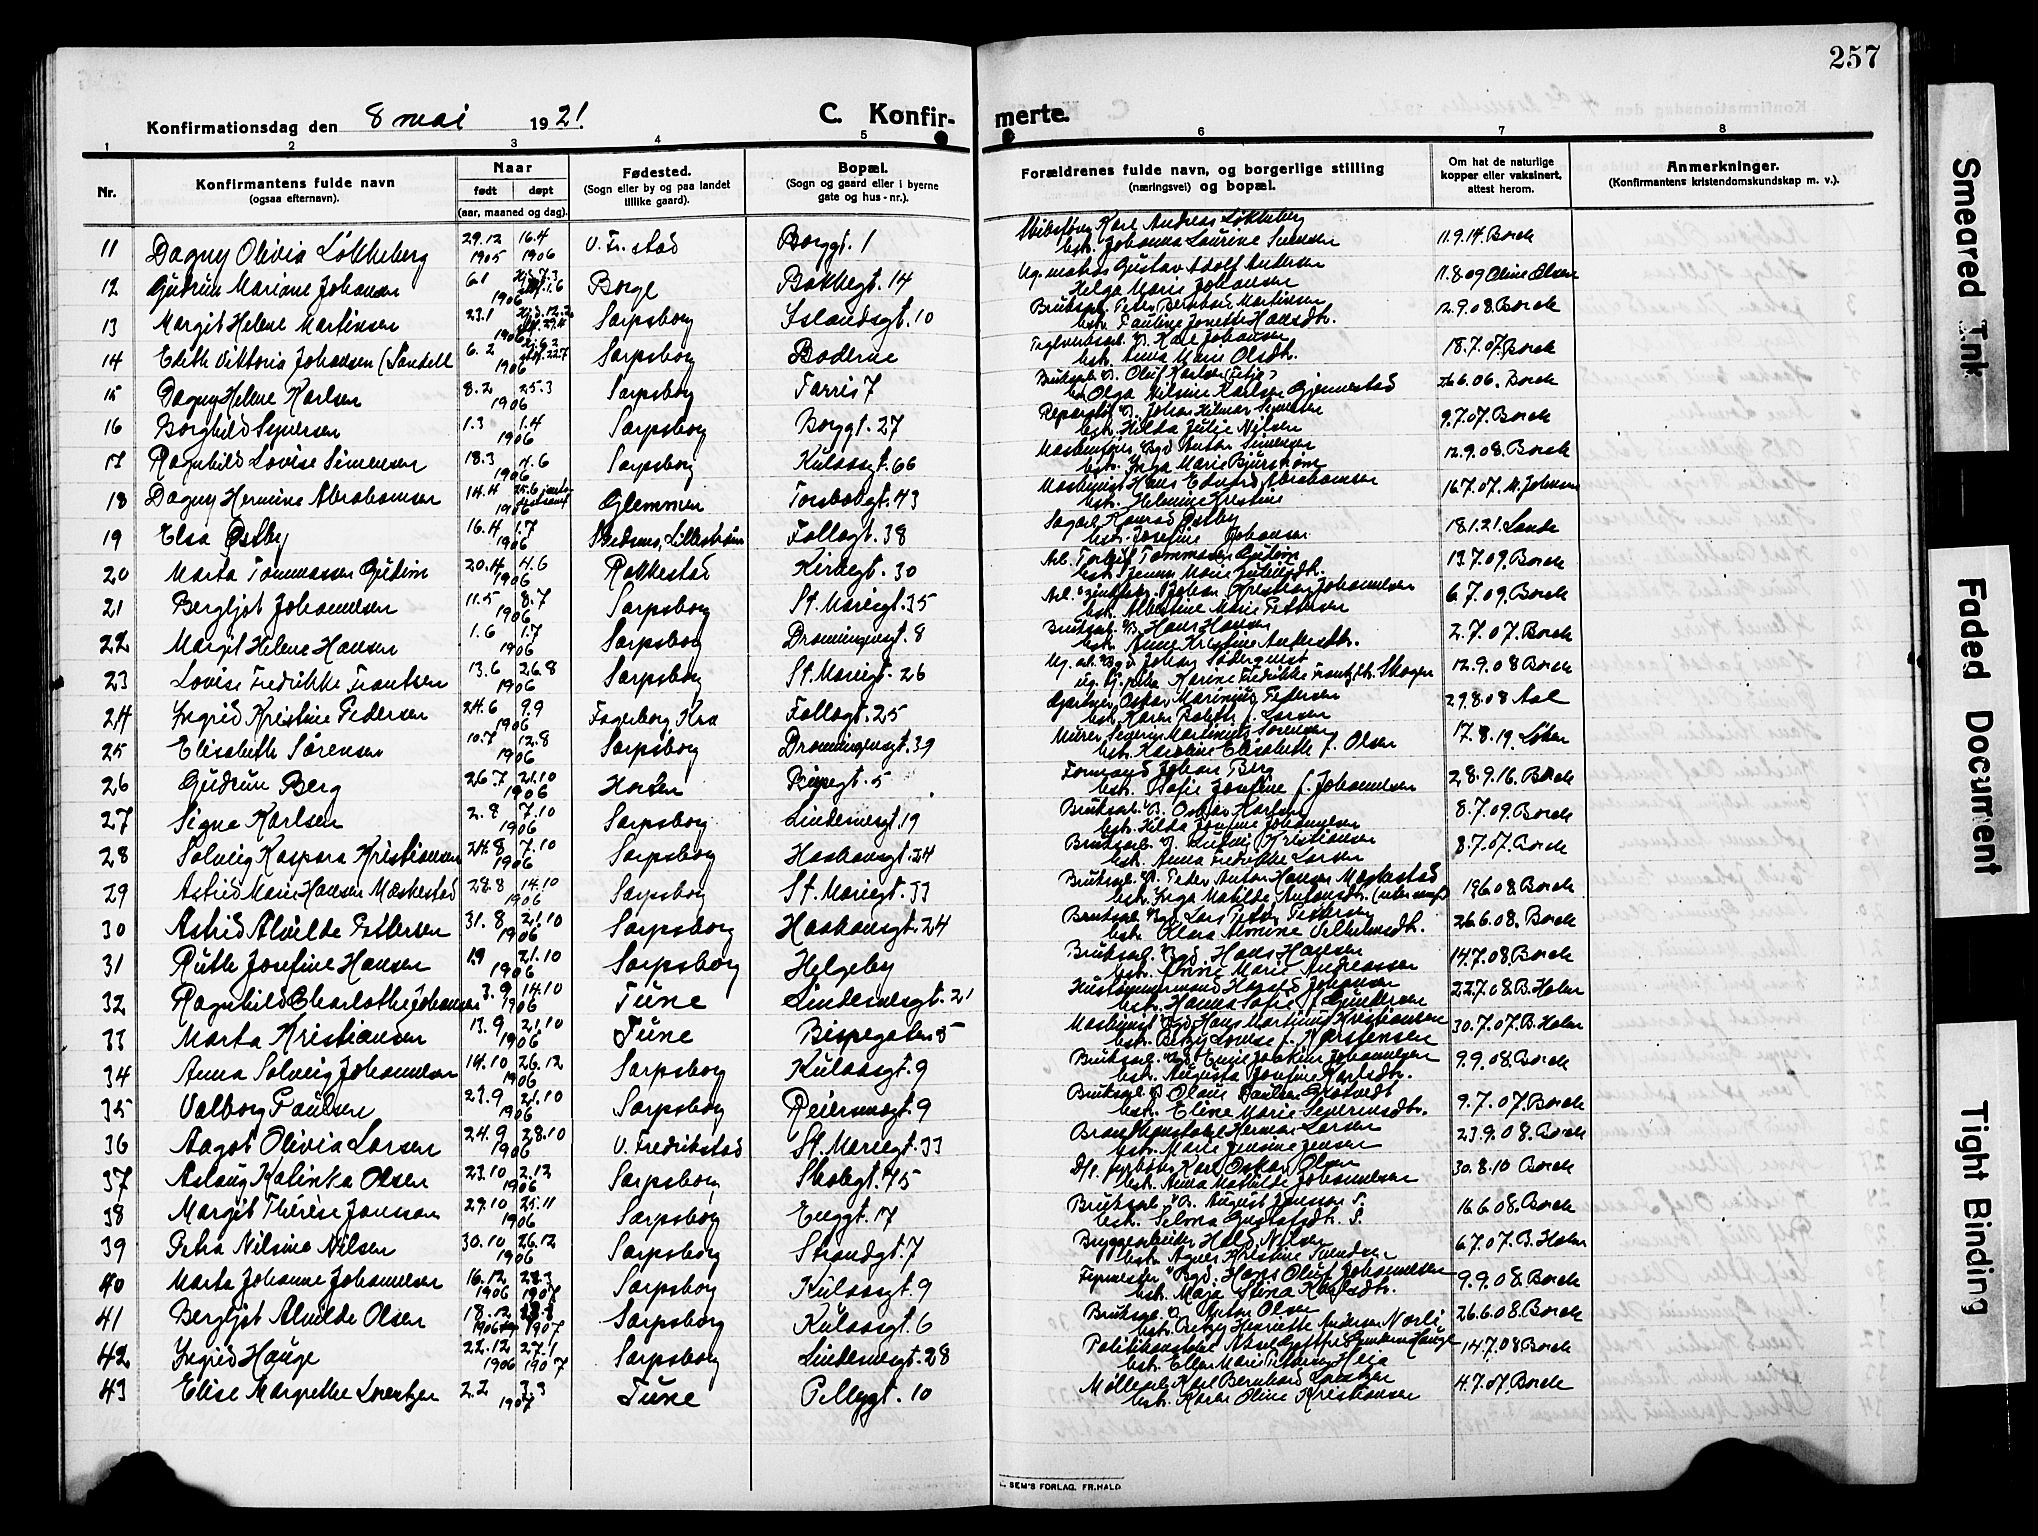 257
Konfirmationsdag den 8 mai 1921
C. Konfirmerte.
1 2 3 4 5 6 7 8
Nr. Konfirmantens fulde navn (ogsaa efternavn). Naar født døpt (aar, maaned og dag). Fødested. (Sogn eller by og paa landet tillike gaard). Bopæl. (Sogn og gaard eller i byerne gate og hus-nr.). Forældrenes fulde navn, og borgerlige stilling (næringsvei) og bopæl. Om hat de naturlige kopper eller vaksinert, attest herom. Anmerkninger. (Konfirmantens kristendomskundskap m. v.).
11 Dagny Olivia Løkkeberg 29.12 1905 16.4 1906 V. Fr.stad Borggt. 1 Karl Andreas Løkkeberg 11.9.14. Borch
hstr. Johanna Laurine Svensen
12 Gudrun Mariane Johansen 6.1 1906 Borge Bakkegt. 14 Ug. matros Gustav Adolf Andersen 11.8.09 Oline Olsen
Helga Marie Johansen
13 Margit Helene Martinsen 23.1 1906 Sarpsborg Islandsgt. 10 Bruksarb. Peter Bernhard Martinsen 12.9.08. Borch
hstr. Pauline Jonette Hansdtr.
14 Edith Viktoria Johansen (Sandell 6.2 1906 Sarpsborg Boderne Karl Johansen 18.7.07. Borch
hstr. Anna Marie Olsdtr.
15 Dagny Helene Karlsen 8.2 25.3 1906 Sarpsborg Tarris 7 Bruksarb. Oluf Karlsen 26.6.06. Borch
Olga Nilsine Karlsen Gjennestad
16 Borghild Syversen 1.3 1.4 1906 Sarpsborg Borggt. 27 Johan Hilmar Syversen 9.7.07. Borch
hstr. Hilda Julie Nilsen
17 Ragnhild Lovise Simensen 18.3 4.6 1906 Sarpsborg Kulaasgt. 66 Anton Simensen 12.9.08. Borch
hstr. Inga Marie Bjurstrøm
18 Dagny Hermine Abrahamsen 14.4 25.6 1906 Glemmen Torsbækgt. 43 Maskinist Hans Edvard Abrahamsen 16.7.07. M. Johnsen
hstr. Helmine Kristine
19 Elsa Østby 16.4 1.7 1906 Skedsmo, Lillestrøm Follogt. 38 Sagarb. Konrad Østby 18.1.21. Sande
hstr. Josefine Johansen
20 Marta Tommassen Gutim 20.4 4.6 1906 Rakkestad Kirkegt. 30 Arb. Torleif Tommassen Gutim 13.7.09. Borch
hstr. Jenny Marie
21 Bergljot Johannesen 11.5 8.7 1906 Sarpsborg St. Mariegt. 35 Johan Kristian Johannesen 6.7.09. Borch
hstr. Albertine Marie Pettersen
22 Margit Helene Hansen 1.6 1.7 1906 Sarpsborg Dronningensgt. 8 Bruksarb. Hans Hansen 2.7.07. Borch
hstr. Anne Kristine Andersdtr.
23 Lovise Fredrikke Frantsen 13.6 26.8 1906 Sarpsborg St. Mariegt. 26 Ug. arb. Johan Söderquist 12.9.08 Borch
ug. Karine Fredrikke Frantzdtr. Skogen
24 Ingrid Kristine Pedersen 24.6 9.9 1906 Fagerborg Kra Follogt. 25 Gjørtner Oskar Marinius Pedersen 29.8.08 Aal
hstr. Karen Bolette f. Larsen
25 Elisabeth Sørensen 10.7 12.8 1906 Sarpsborg Dronningensgt. 39 Murer Severin Martinius Sørensen 17.8.19. Løken
hstr. Karoline Elisabeth f. Olsen
26 Gudrun Berg 26.7 21.10 1906 Horten Bispegt. 5 Formand Johan Berg 28.9.16. Borch
hstr. Sofie Josefine f. Johannesen
27 Signe Karlsen 2.8 7.10 1906 Sarpsborg Lindemesgt. 19 Bruksarb. Oskar Karlsen 8.7.09. Borch
hstr. Hilda Josefine Johannesen
28 Solveig Kaspara Kristiansen 24.8 7.10 1906 Sarpsborg Haakonsgt. 24 Bruksarb. Ludvig Kristiansen 8.7.07. Borch
hstr. Anna Fredrikke Larsen
29 Astrid Marie Hansen Mækestad 28.8 14.10 1906 Sarpsborg St. Mariegt. 33 Bruksarb. Peder Anton Hansen Mækestad 19.6.08. Borch
hstr. Inga Matilde Antonsdtr.
30 Astrid Alvilde Pettersen 31.8 21.10 1906 Sarpsborg Haakonsgt. 24 Bruksarb. Lars Petter Pettersen 26.6.08. Borch
hstr. Klara Almine Vilhelmsdtr.
31 Ruth Josefine Hansen 1.9 21.10 1906 Sarpsborg Helgeby Bruksarb. Hans Hansen 14.7.08. Borch
hstr. Anne Marie Andreassen
32 Ragnhild Charlotte Johansen 3.9 14.10 1906 Tune Lindemesgt. 21 Hustømmermand Harald Johansen 22.7.08. B. Holm
hstr. Hanna Sofie f. Gundersen
33 Marta Kristiansen 13.9 21.10 1906 Tune Bispegaten 5 Maskinist Hans Martinius Kristiansen 30.7.07. B. Holm
hstr. Betzy Lovise f. Mortensen
34 Anna Solveig Johannesen 14.10 26.12 1906 Sarpsborg Kulaasgt. 9 Bruksarb. Emil Joakim Johannesen 9.9.08. Borch
hstr. Augusta Josefine Karlsdtr.
35 Valborg Paulsen 23.9 21.10 1906 Sarpsborg Reiersensgt. 9 Bruksarb. Olaus Paulsen Grøtvedt 9.7.07. Borch
hstr. Eline Marie Severinsdtr.
36 Aagot Olivia Larsen 24.9 28.10 1906 V. Fredrikstad St. Mariegt. 33 Brandkonstabel Herman Larsen 23.9.08. Borch
hstr. Marie Jensine Jensen
37 Aslaug Katinka Olsen 23.10 2.12 1906 Sarpsborg Skolegt. 75 D/s. fyrbøter Karl Oskar Olsen 30.8.10 Borch
hstr. Anna Mathilde Johannesen
38 Margit Thérèse Jonsson 29.10 25.11 1906 Sarpsborg Enggt. 17 Bruksarb. August Jonsson S. 16.6.08. Borch
hstr. Selma Gustafsdtr. S.
39 Petra Nilsine Nilsen 30.10 26.12 1906 Sarpsborg Strandgt. 7 Bryggearbeider Hald. Nilsen 6.7.07. B. Holm
hstr. Agnes Kristine Svendsen
40 Marta Johanne Johannesen 16.12 1906 28.3 1907 Sarpsborg Kulaasgt. 9 Hans Oluf Johannesen 9.9.08. Borch
hstr. Maja Stina Karlsdtr.
41 Bergljot Alvilde Olsen 18.12 1906 1907 Sarpsborg Kulaasgt. 6 Bruksarb. Anton Olsen 26.6.08. Borch
hstr. Betzy Henriette Andersen Narli
42 Ingrid Hauge 22.12 1906 27.1 1907 Sarpsborg Lindemesgt. 28 Politikonstabel Aksel Gottfred Gundersen Hauge 14.7.08. Borch
hstr. Ellen Marie Heja
43 Elise Margrethe Lorentzen 2.2 3.3 1907 Tune Pellygt. 10 Møllearb. Karl Bernhard Lorentzen 4.7.07. Borch
hstr. Karen Oline Kristiansen
SEM'S FORLAG. FR.HALD
Smeared Ink
Faded Document
Tight Binding